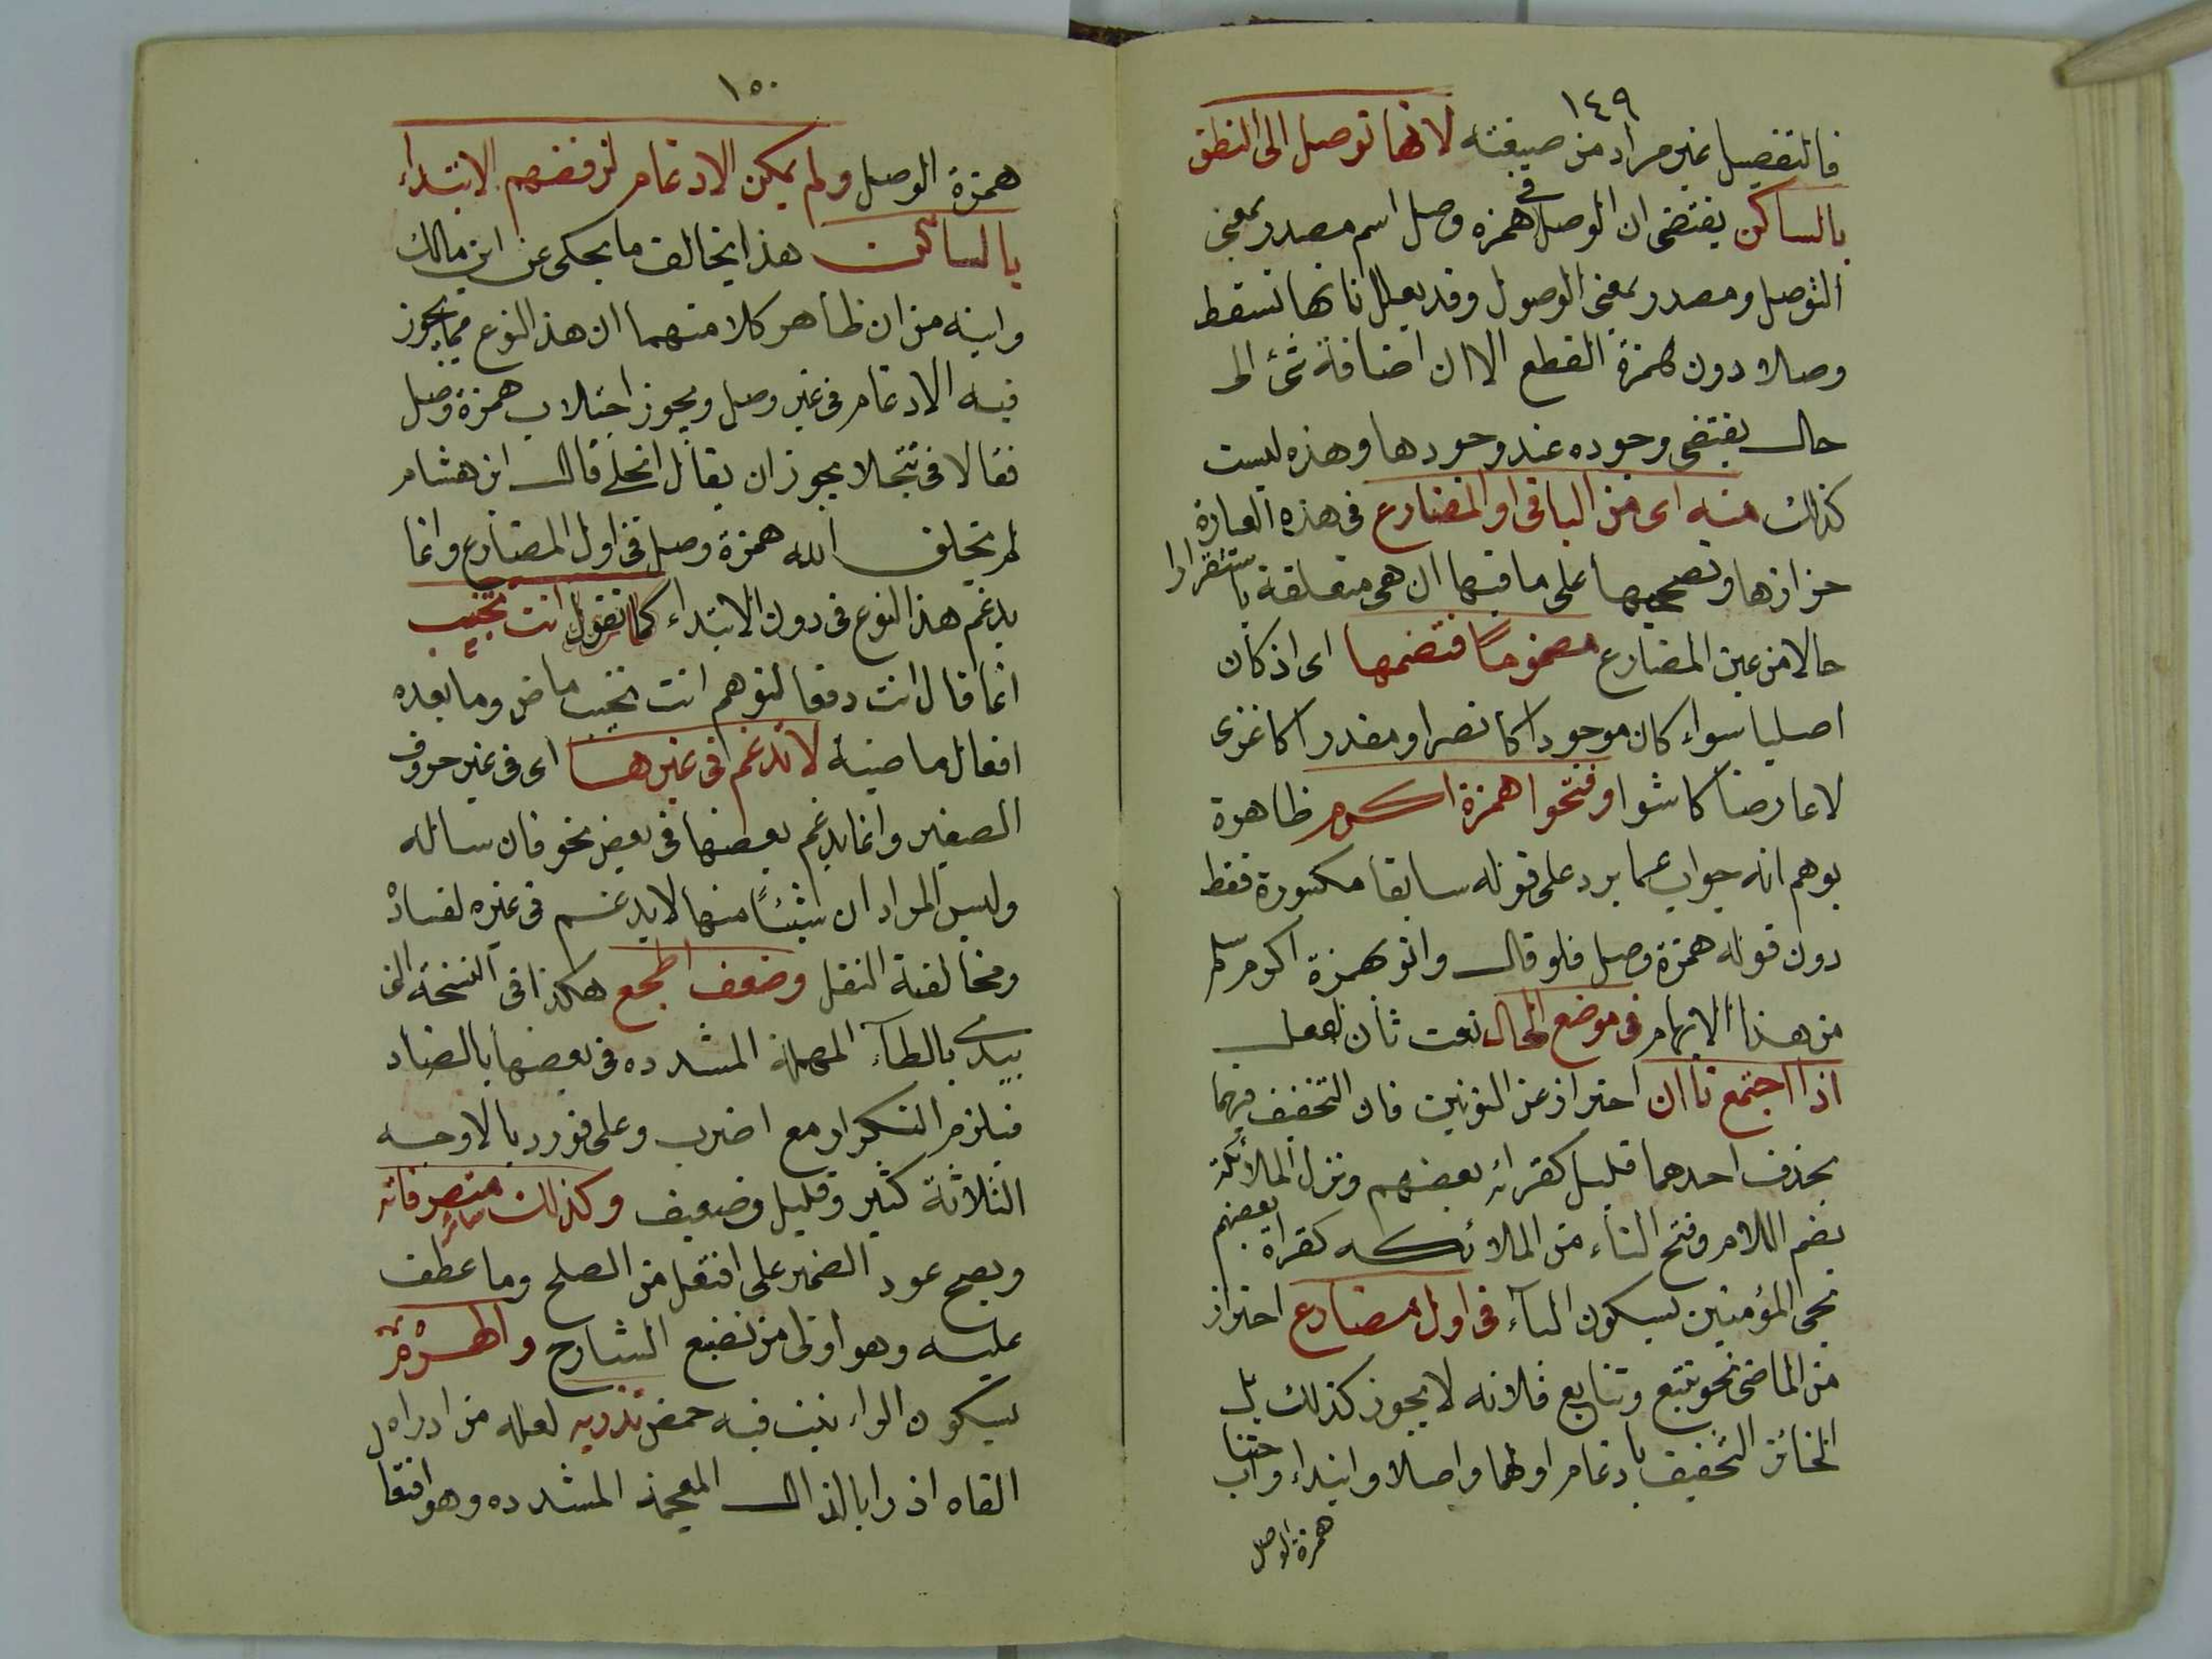 ١٤٩
فالتفصيل غير مراد من صيغته لانها توصل الى النطق
بالساكن يقتضى ان الوصل فى همزه وصل اسم مصدر بمعنى
التوصل ومصدر بمعنى الوصول وقد يعلل بانها تسقط
وصلا دون همزة القطع الا ان اضافة شئ الى
حال يقتضى وجوده عند وجودها وهذه ليست
كذلك منه اى من الباقى او المضارع فى هذه العبارة
حزازها وتصحيحها على ما فيها ان هى متعلقة باستقرارا
حالا من عين المضارع مضموما فتضمها اى اذ كان
اصليا سواء كان موجودا كانصر او مقدرا كاغزى
لا عارضا كامشوا وفتحوا همزة اكرم ظاهرة
يوهم انه جواب عما يرد على قوله سابقا مكسورة فقط
دون قوله همزة وصل فلو قال واتو بهمزة اكرم سلم
من هذا الايهام فى موضع الحال نعت ثان لفعل
اذا اجتمع تاان احتراز عن النونين فان التخفيف فيهما
بحذف احدهما قليل كقرائه بعضهم ونزل الملائكة
بضم اللام وفتح التاء من الملائكه كقراة بعضهم
نجى المؤمنين بسكون الياء فى اول مضارع احتراز
من الماضى نحو تتبع وتتابع فلانه لا يجوز كذلك بل
الجائز التخفيف بادغام اولهما واصلا وابتداء واجتناب
همزة الوصل
١٥٠
همزة الوصل ولم يمكن الادغام لرفضهم الابتداء
بالساكن هذا يخالف ما يحكى عن ابن مالك
وابنه من ان ظاهر كلامنهما ان هذ النوع مما يجوز
فيه الادغام فى غير وصل ويجوز اجتلاب همزة وصل
فقالا فى تتجلا يجوز ان يقال اتجلى قال ابن هشام
لم يخلق الله همزة وصل فى اول المضارع وانما
يدغم هذ النوع فى دون الابتداء كما تقول انت تجنب
انما قال انت دفعا لتوهم انت تجنب ماض وما بعده
افعال ماضية لا تدغم فى غيرها اى فى غير حروف
الصفير وانما يدغم بعضها فى بعض نحو فان ساله
وليس المراد ان شيئًا منها لا يدغم فى غيره لفساد
ومخالفة النقل وضعف اطجع هكذا فى النسخة التى
بيدى بالطآء المهملة المشدده فى بعضها بالضاد
فيلزم التكرار مع اضرب وعلى فورد بالاوجه
الثلاثة كثير وقليل وضعيف وكذلك متصرفاته
ويصح عود الضمير على افتعل من الصلح وما عطف
عليه وهو اولى من تضيع الشارح والهرم
بسكون الراء نبت فيه حمض تذريه لعله من ادراه ل
القاه اذ را بالذال المعجمة المشدده وهو افتعا